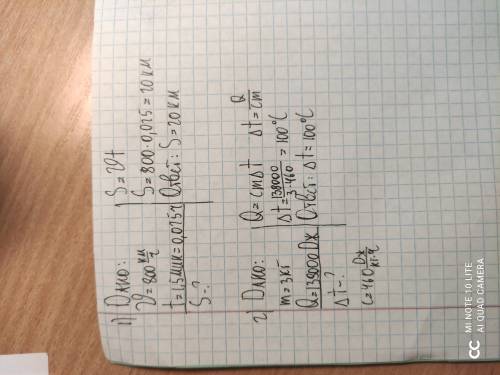 1) Дано:
𝒱 = 800 км/ч
t = 1,5 мин = 0,025 ч
S - ?
S = 𝒱t
S = 800 · 0,025 = 20 км
Ответ: S = 20 км
2) Дано:
m = 3 кг
Q = 138000 Дж
Δt - ?
c = 460 Дж/кг·ч
Q = cmΔt Δt = Q/cm
Δt = 138000/3·460 = 100°C
Ответ: Δt = 100°C
MI NOTE 10 LITE
AI QUAD CAMERA